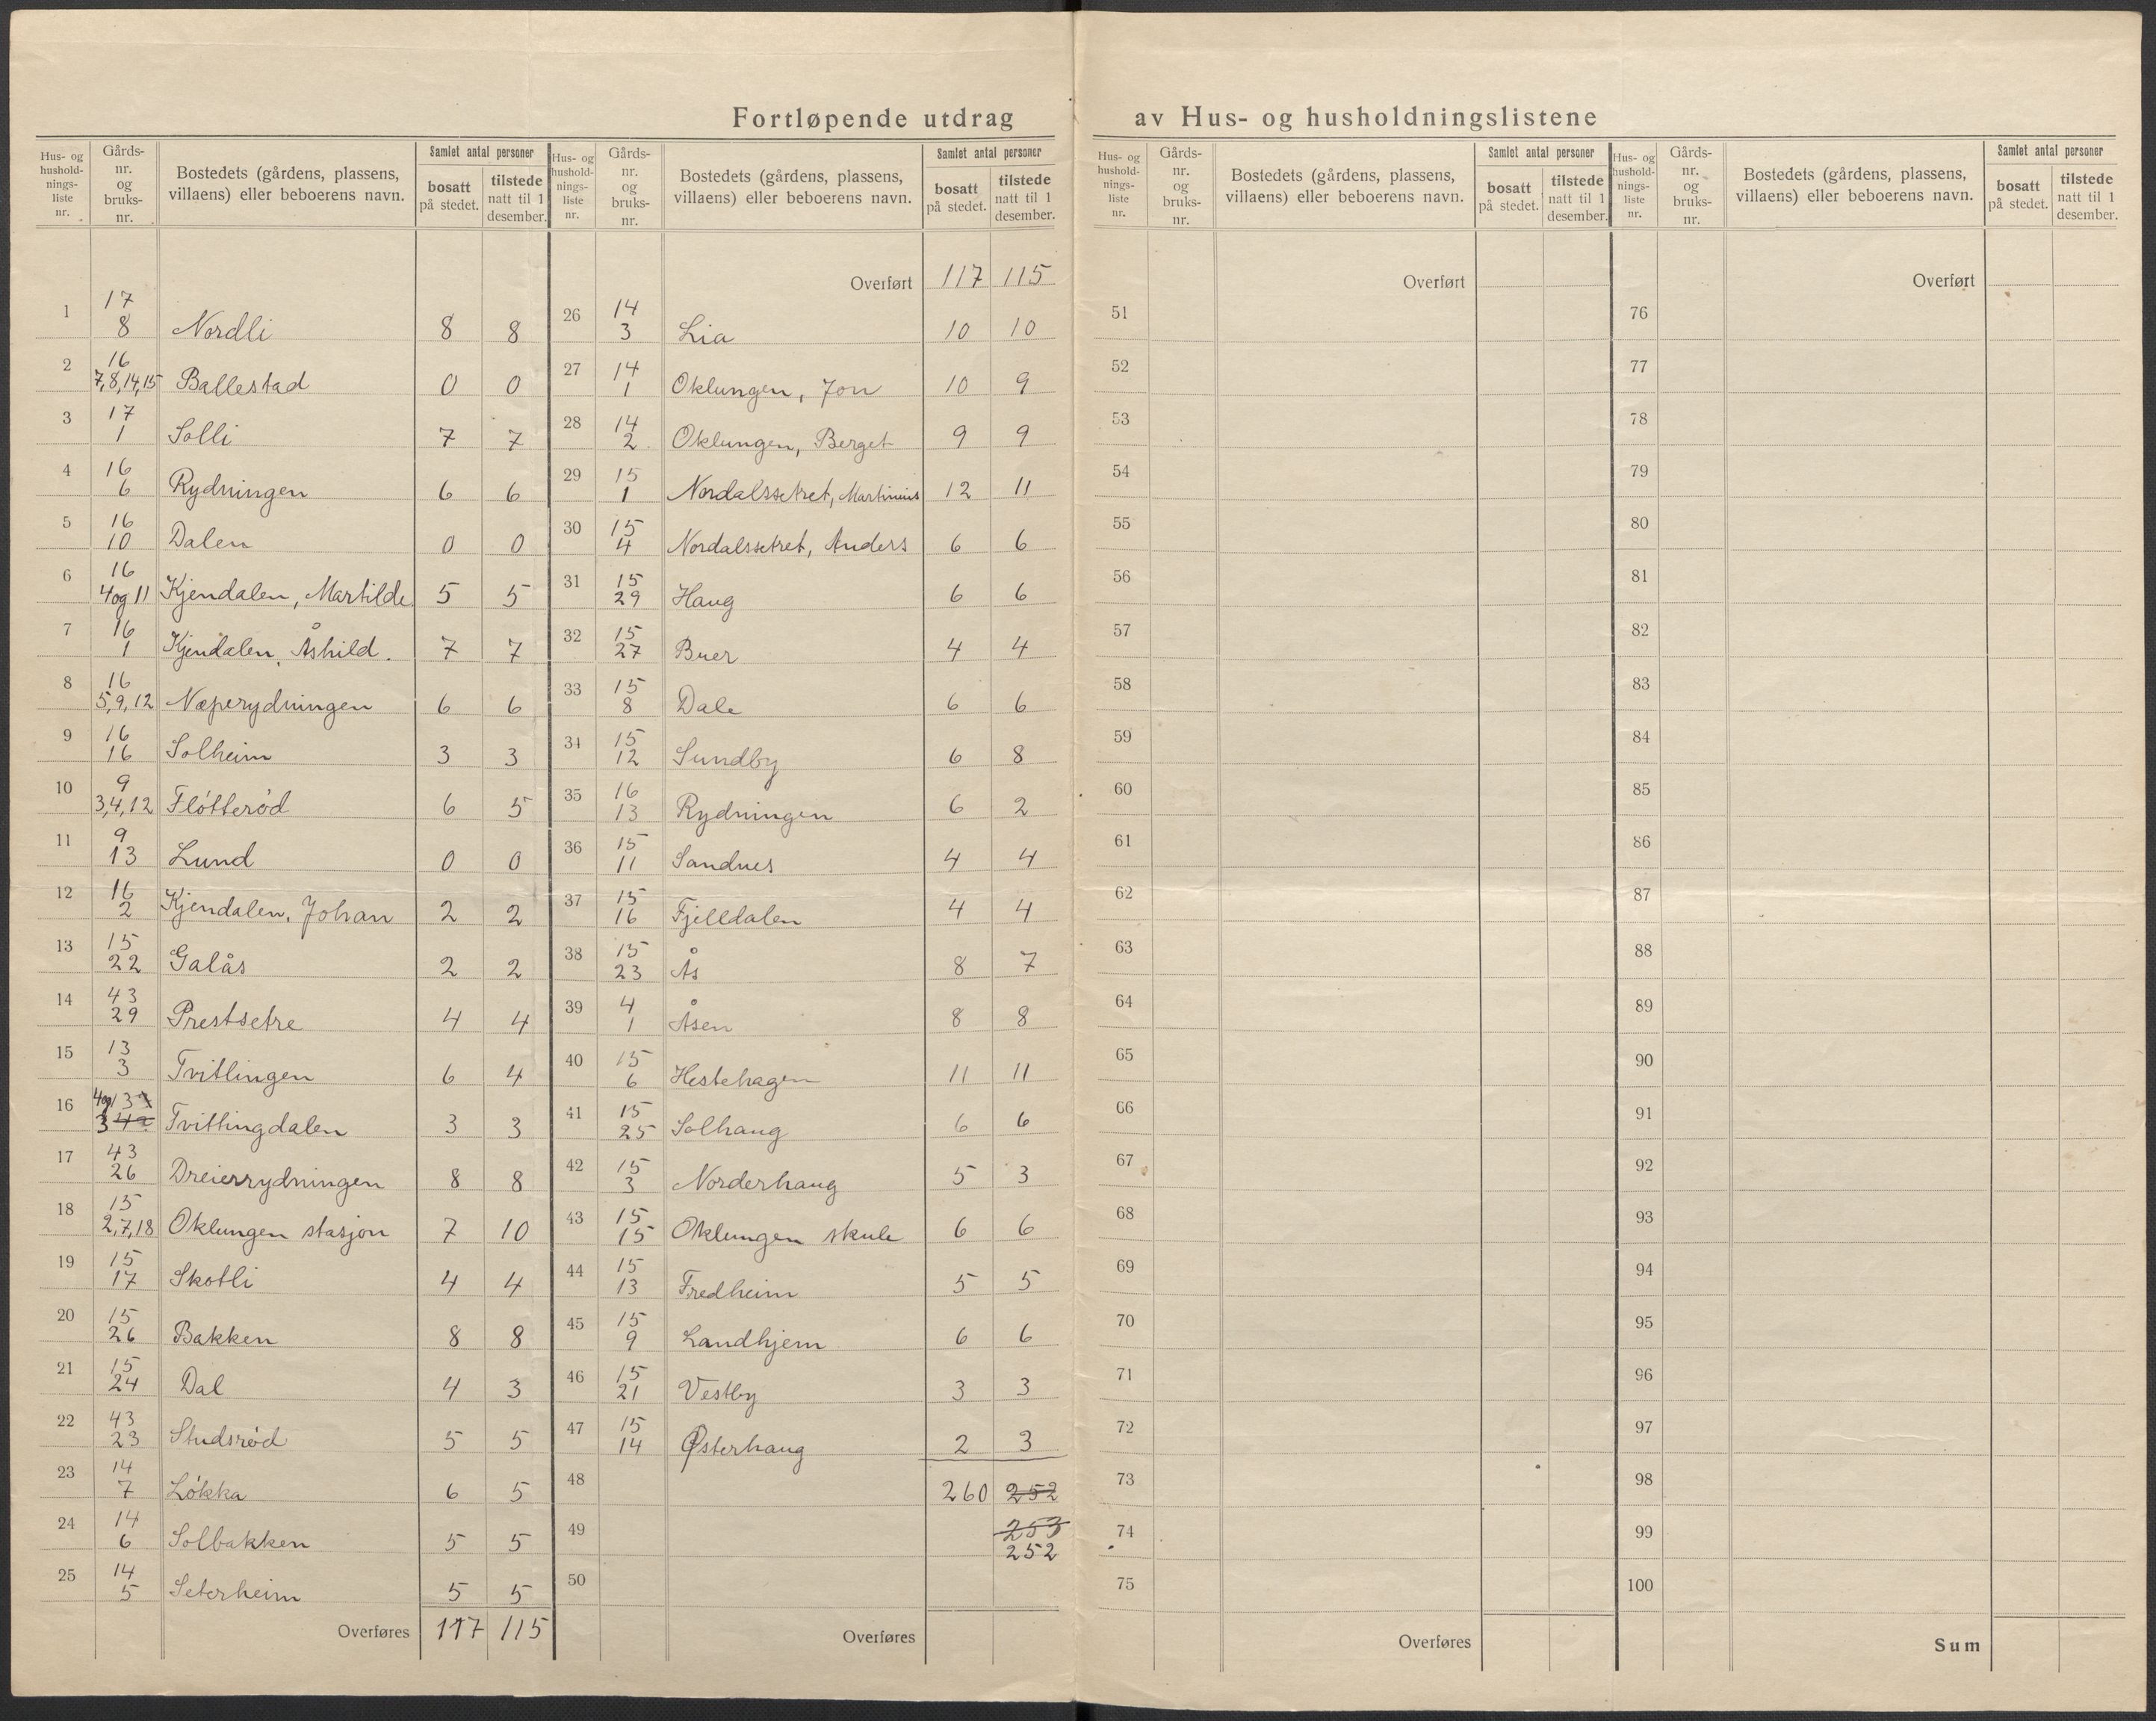 Fortløpende utdrag av Hus- og husholdningslistene
Hus- og husholdningsliste nr. Gårdsnr. og bruksnr. Bostedets (gårdens, plassens, villaens) eller beboerens navn. Samlet antal personer bosatt på stedet. tilstede natt til 1 desember.
1 17 8 Nordli 8 8
2 16 7,8,14,15 Ballestad 0 0
3 17 1 Solli 7 7
4 16 6 Rydningen 6 6
5 16 10 Dalen 0 0
6 16 4 og 11 Kjendalen, Martilde 5 5
7 16 1 Kjendalen, Åshild. 7 7
8 16 5,9,12 Næperydningen 6 6
9 16 16 Solheim 3 3
10 9 3,4,12 Fløtterød 6 5
11 9 13 Lund 0 0
12 16 2 Kjendalen, Johan 2 2
13 15 22 Galås 2 2
14 43 29 Prestsetre 4 4
15 13 3 Tvitlingen 6 4
16 4 og 13 3 Tvittingdalen 3 3
17 43 26 Dreierrydningen 8 8
18 15 2,7,18 Oklungen stasjon 7 10
19 15 17 Skotli 4 4
20 15 26 Bakken 8 8
21 15 24 Dal 4 3
22 43 23 Studsrød 5 5
23 14 7 Løkka 6 5
24 14 6 Solbakken 5 5
25 14 5 Seterheim 5 5
Overføres 117 115
Hus- og husholdningsliste nr. Gårdsnr. og bruksnr. Bostedets (gårdens, plassens, villaens) eller beboerens navn. Samlet antal personer bosatt på stedet. tilstede natt til 1 desember.
Overført 117 115
26 14 3 Lia 10 10
27 14 1 Oklungen, Jon 10 9
28 14 2 Oklungen, Berget 9 9
29 15 1 Nordalssetret, Martinius 12 11
30 15 4 Nordalssetret, Anders 6 6
31 15 29 Haug 6 6
32 15 27 Buer 4 4
33 15 8 Dale 6 6
34 15 12 Sundby 6 8
35 16 13 Rydningen 6 2
36 15 11 Sandnes 4 4
37 15 16 Fjelldalen 4 4
38 15 23 Ås 8 7
39 4 1 Åsen 8 8
40 15 6 Hestehagen 11 11
41 15 25 Solhaug 6 6
42 15 3 Norderhaug 5 3
43 15 15 Oklungen skule 6 6
44 15 13 Fredheim 5 5
45 15 9 Landhjem 6 6
46 15 21 Vestby 3 3
47 15 14 Østerhaug 2 3
48 260 252
49 253
252
50
Overføres
Hus- og husholdningsliste nr. Gårdsnr. og bruksnr. Bostedets (gårdens, plassens, villaens) eller beboerens navn. Samlet antal personer bosatt på stedet. tilstede natt til 1 desember.
Overført
51
52
53
54
55
56
57
58
59
60
61
62
63
64
65
66
67
68
69
70
71
72
73
74
75
Overføres
Hus- og husholdningsliste nr. Gårdsnr. og bruksnr. Bostedets (gårdens, plassens, villaens) eller beboerens navn. Samlet antal personer bosatt på stedet. tilstede natt til 1 desember.
Overført
76
77
78
79
80
81
82
83
84
85
86
87
88
89
90
91
92
93
94
95
96
97
98
99
100
Sum